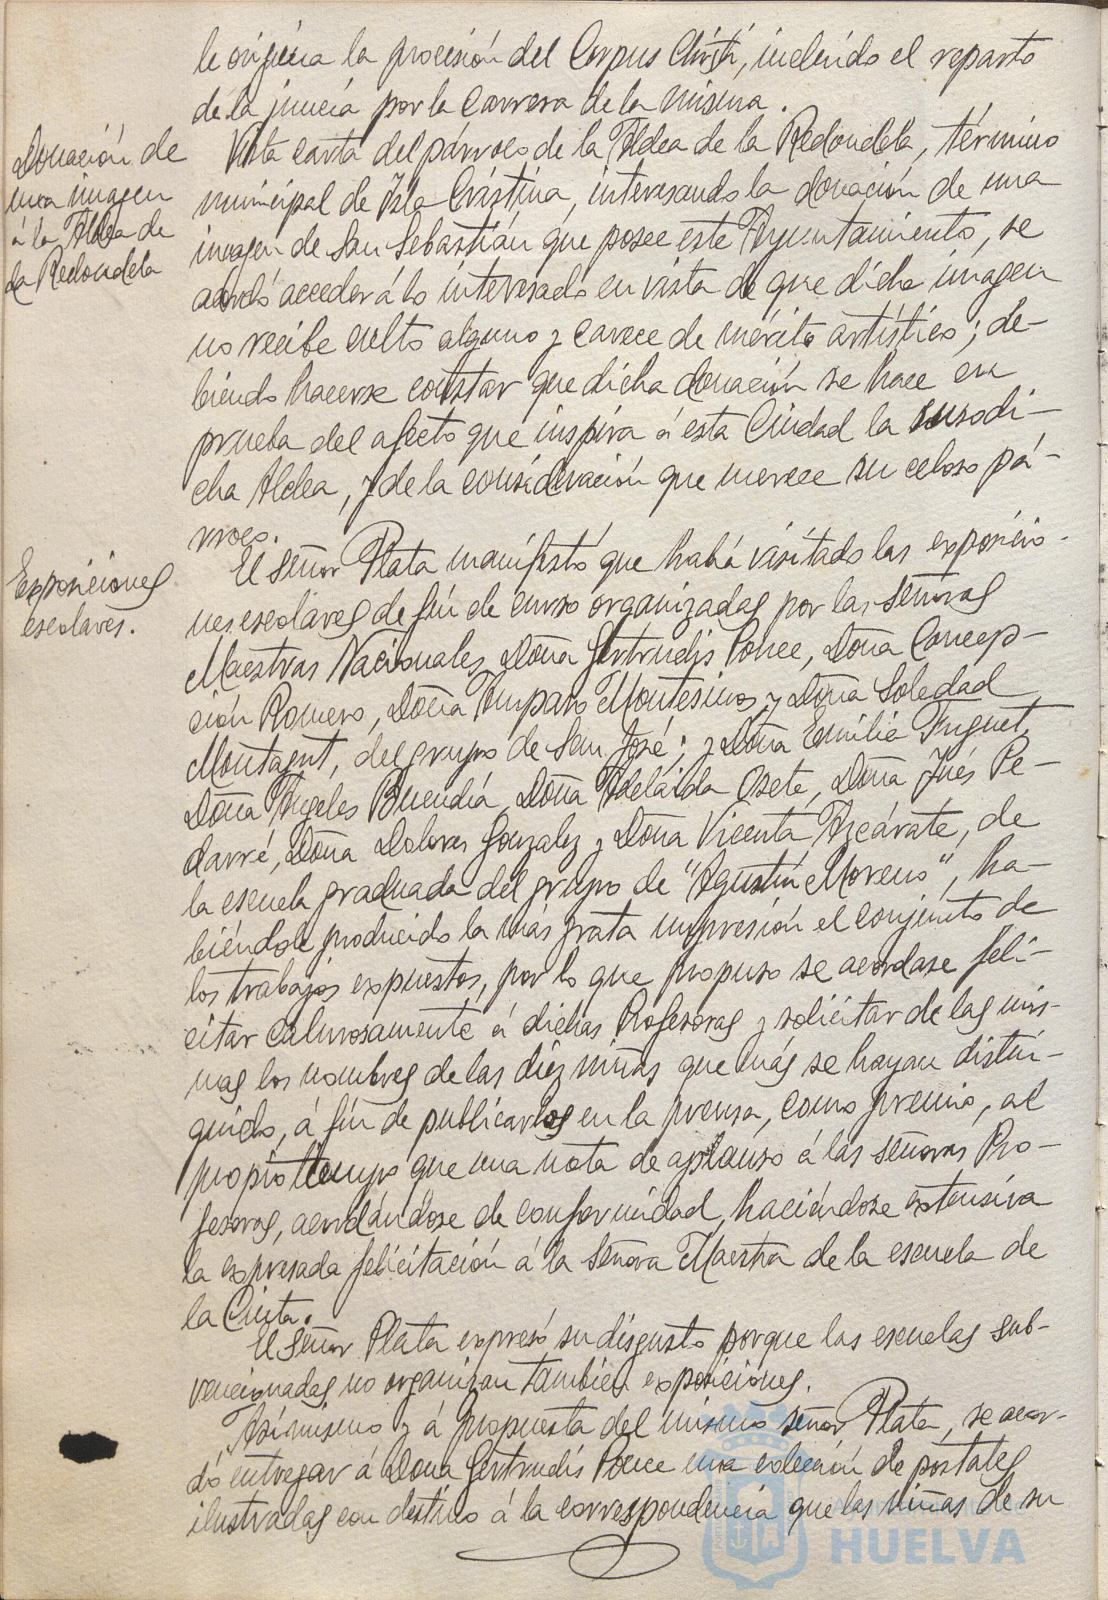 le origina la procesión del Corpus Christi, incluido el reparto
de la juncia por la carrera de la misma.
Donación de
una imagen
á la Aldea de
La Redondela
Vista carta del párroco de la Aldea de la Redondela, término
municipal de Isla Cristina, interesando la donación de una
imagen de San Sebastián que posee este Ayuntamiento, se
acordó acceder á lo interesado en vista de que dicha imagen
no recibe culto alguno y carece de mérito artístico; de-
biendo hacerse constar que dicha donación se hace en
prueba del afecto que inspira á esta Ciudad la susodi-
cha Aldea, y de la consideración que merece su celoso pá-
rroco.
Exposiciones
escolares.
El Señor Plata manifestó que había visitado las exposicio-
nes escolares de fin de curso organizadas por las Señoras
Maestras Nacionales, Doña Gertrudis Ponce, Doña Concep-
ción Romero, Doña Amparo Montesinos y Doña Soledad
Montagut, del grupo de San José; y Doña Emilia Fuguet,
Doña Angeles Buendía, Doña Adelaida Osete, Doña Inés Pe-
darré, Doña Dolores González y Doña Vicenta Azcárate, de
la escuela graduada del grupo de "Agustín Moreno", ha-
biéndole producido la más grata impresión el conjunto de
los trabajos expuestos, por lo que propuso se acordase feli-
citar calurosamente á dichas Profesoras y solicitar de las mis-
mas los nombres de las diez niñas que más se hayan distin-
guido, á fin de publicarlos en la prensa, como premio, al
propio tiempo que una nota de aplauso á las señoras Pro-
fesoras, acordándose de conformidad, haciéndose extensiva
la expresada felicitación á la Señora Maestra de la escuela de
la Cinta.
El Señor Plata expresó su disgusto porque las escuelas sub-
vencionadas no organizan también exposiciones.
Asimismo y á propuesta del mismo señor Plata, se acor-
dó entregar á Doña Gertrudis Ponce una colección de postales
ilustradas con destino á la correspondencia que las niñas de su
HUELVA